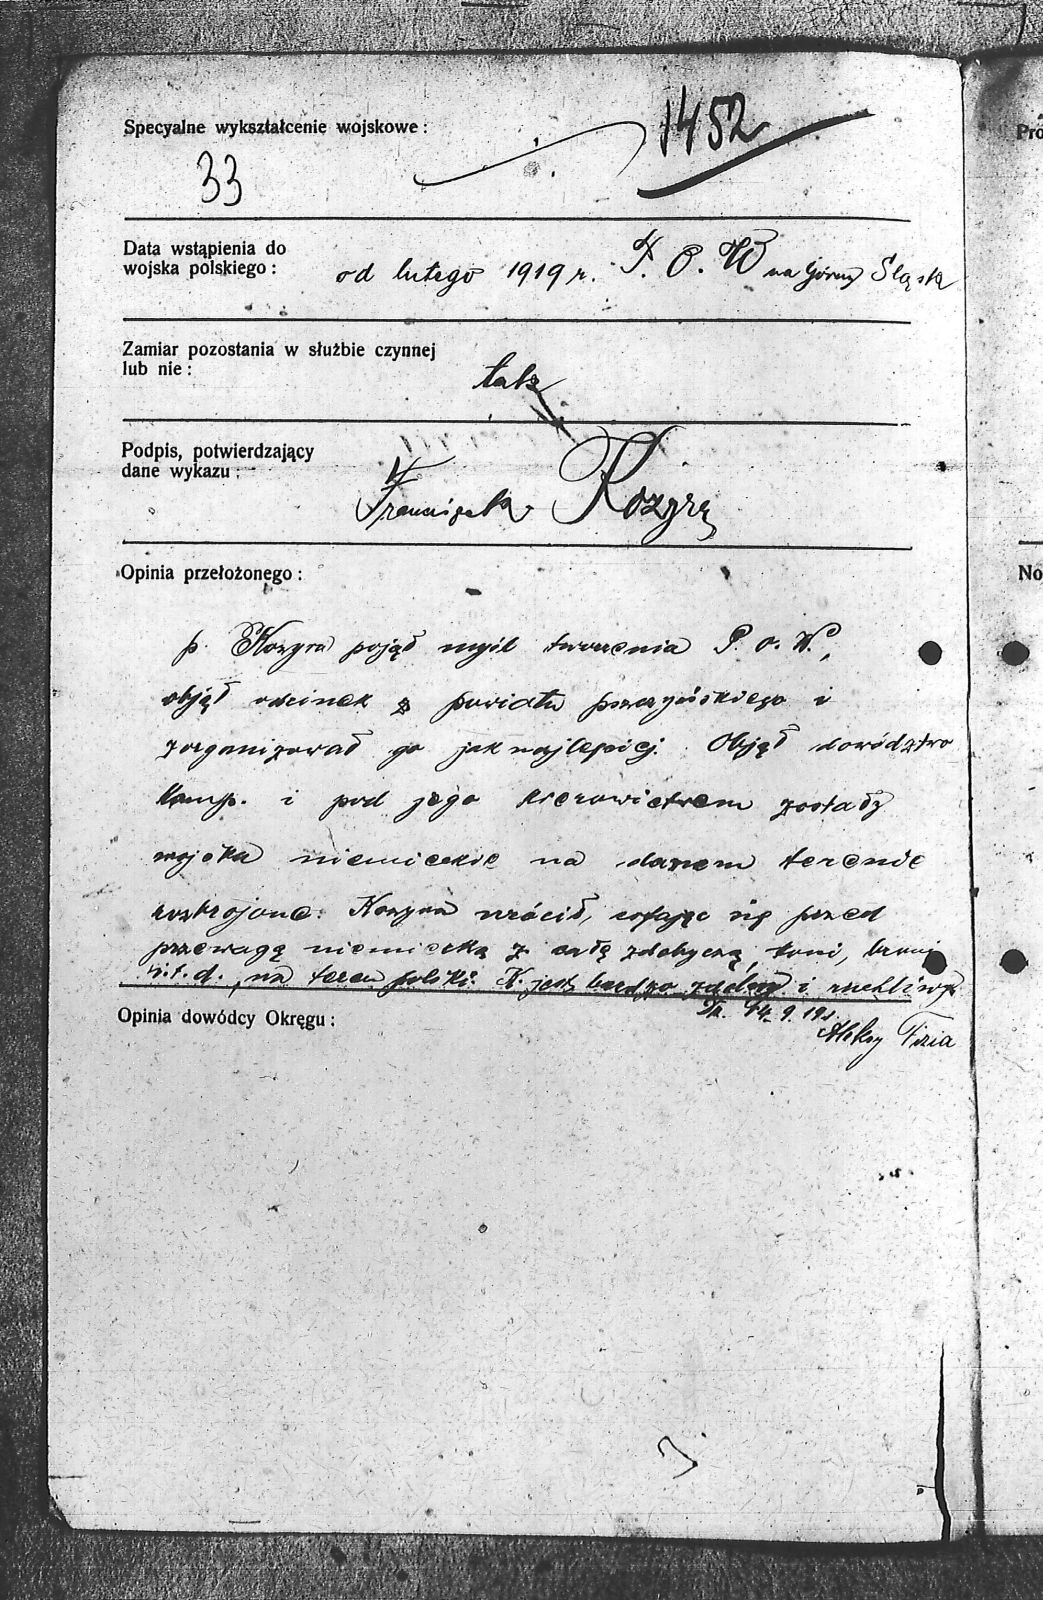 1452
Specyalne wykształcenie wojskowe:
33
Data wstąpienia do
wojska polskiego:
od lutego 1919 r. P. O. W na Górny Śląsk
Zamiar pozostania w służbie czynnej
lub nie:
tak
Podpis, potwierdzający
dane wykazu:
Franciszek Kozyra
Opinia przełożonego:
p. Kozyra pojął myśl tworzenia P. O. W.,
objął odcinek z powiatu pszczyńskiego i
zorganizował go jak najlepiej. Objął dowództwo
komp. i pod jego kierowictwem zostały
wojska niemieckie na danem terenie
rozbrojone. Kozyra wrócił, cofając się przed
przewagą niemiecką z całą zdobyczą, koni, broni
i.t.d., na teren polski. K. jest bardzo zdolny i ruchliwy.
14. 9. 19
Aleksy Fizia
Opinia dowódcy Okręgu:
Pró
No